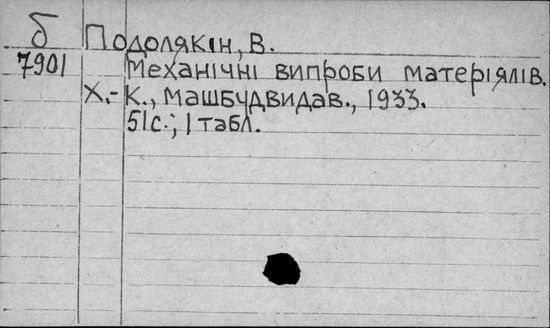 б Подолякін, В.
7901 Механічні випроби матеріялів.
Х.-К., Машбудвидав., 1933.
51с.; 1 табл.